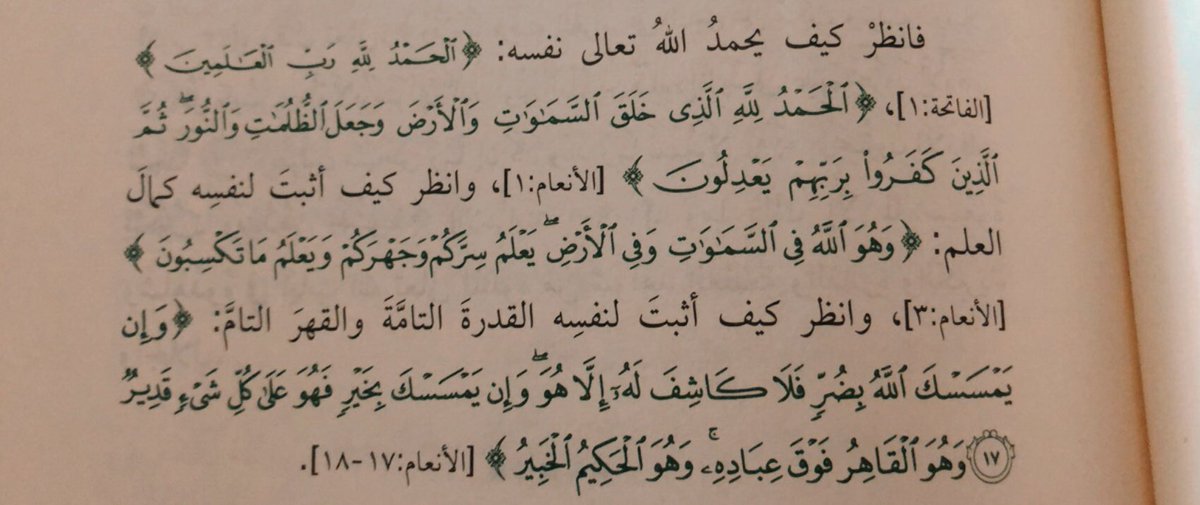 فانظرْ كيف يحمدُ اللهُ تعالى نفسه: ﴿ٱلْحَمْدُ لِلَّهِ رَبِّ ٱلْعَـٰلَمِينَ﴾
[الفاتحة:١]، ﴿ٱلْحَمْدُ لِلَّهِ ٱلَّذِى خَلَقَ ٱلسَّمَـٰوَٰتِ وَٱلْأَرْضَ وَجَعَلَ ٱلظُّلُمَـٰتِ وَٱلنُّورَ ۖ ثُمَّ
ٱلَّذِينَ كَفَرُوا۟ بِرَبِّهِمْ يَعْدِلُونَ﴾ [الأنعام:١]، وانظر كيف أثبتَ لنفسِه كمالَ
العلم: ﴿وَهُوَ ٱللَّهُ فِى ٱلسَّمَـٰوَٰتِ وَفِى ٱلْأَرْضِ ۖ يَعْلَمُ سِرَّكُمْ وَجَهْرَكُمْ وَيَعْلَمُ مَا تَكْسِبُونَ﴾
[الأنعام:٣]، وانظر كيف أثبتَ لنفسِه القدرةَ التامَّةَ والقهرَ التامَّ: ﴿وَإِن
يَمْسَسْكَ ٱللَّهُ بِضُرٍّ فَلَا كَاشِفَ لَهُۥٓ إِلَّا هُوَ ۖ وَإِن يَمْسَسْكَ بِخَيْرٍ فَهُوَ عَلَىٰ كُلِّ شَىْءٍ قَدِيرٌ
١٧ وَهُوَ ٱلْقَاهِرُ فَوْقَ عِبَادِهِۦ ۚ وَهُوَ ٱلْحَكِيمُ ٱلْخَبِيرُ﴾ [الأنعام:١٧-١٨].